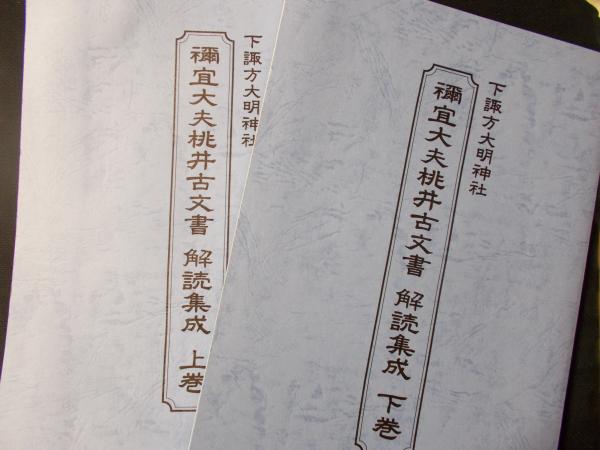 下諏方大明神社
禰宜大夫桃井古文書 解読集成 下巻
下諏方大明神社
禰宜大夫桃井古文書 解読集成 上巻